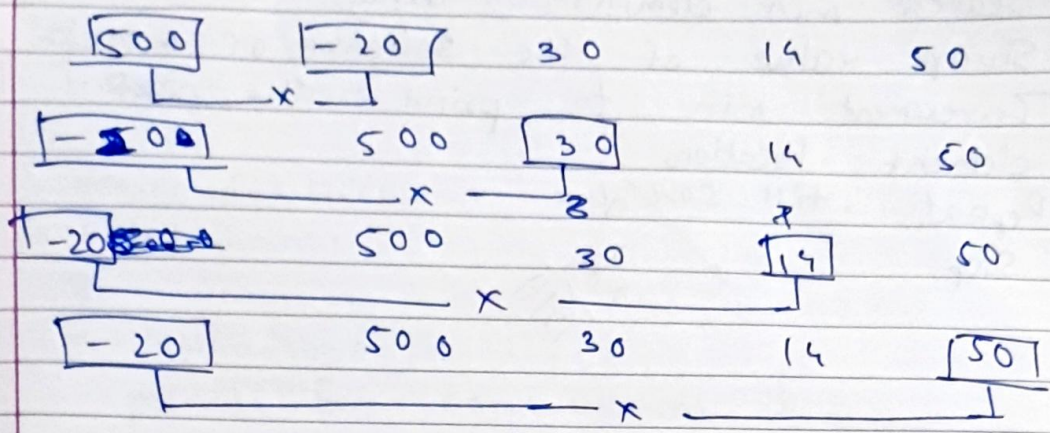 500 -20 30 14 50
x
- 500 30 14 50
x
-20 500 30 14 50
x
-20 500 30 14 50
x